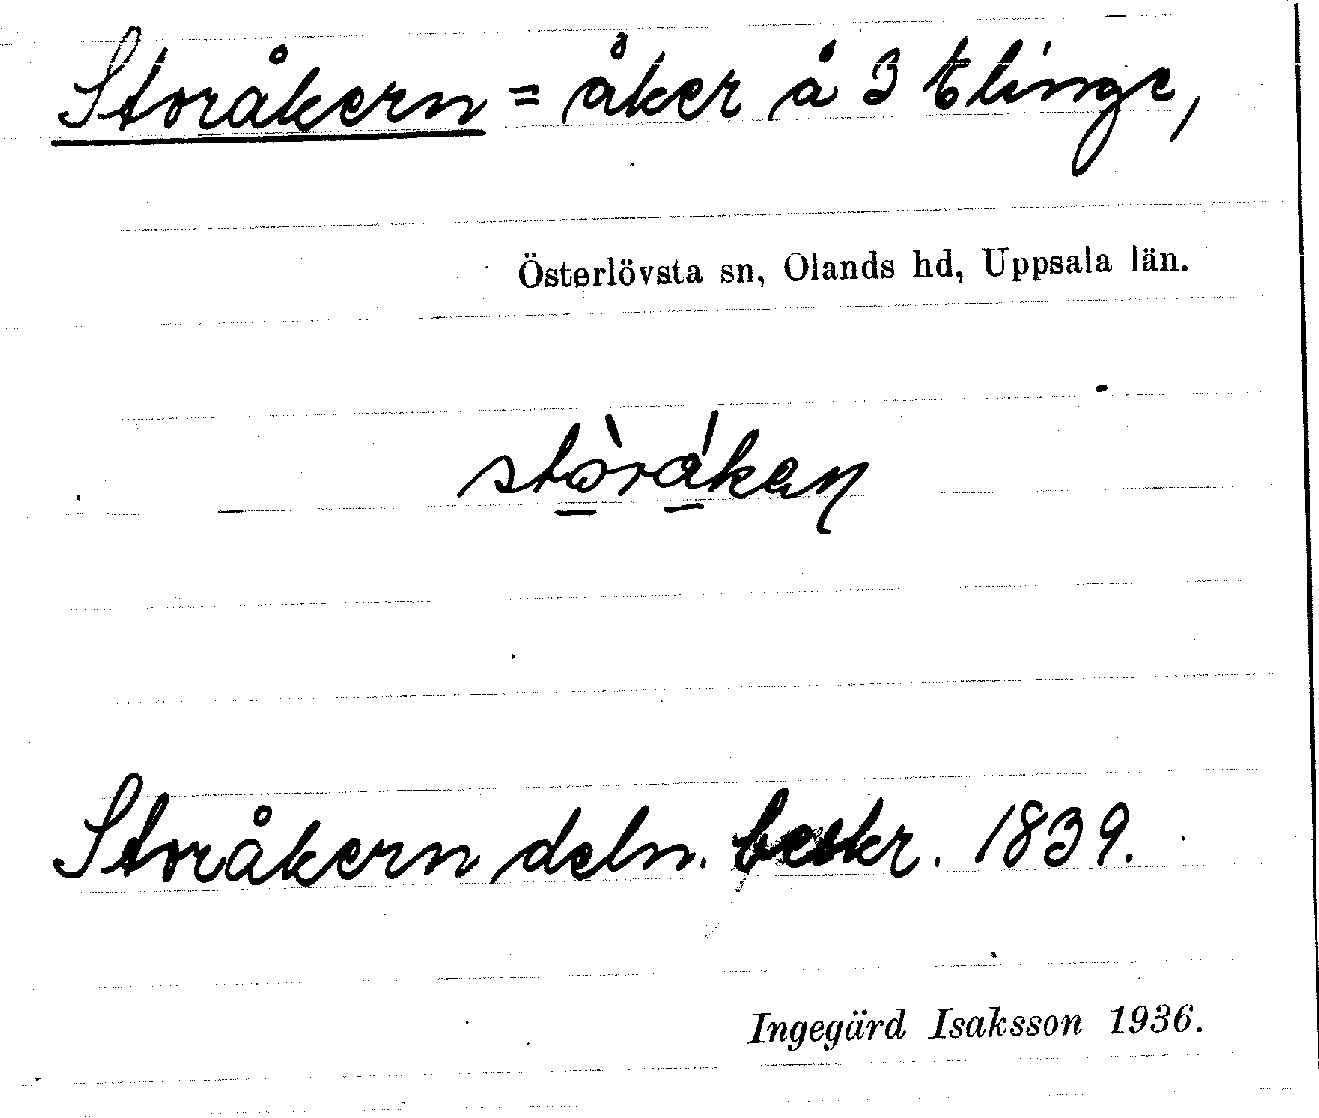 Storåkern = åker å 3 Elinge,
Österlövsta sn, Olands hd, Uppsala län.
Storåkern deln. beskr. 1839.
Ingegärd Isaksson 1936.